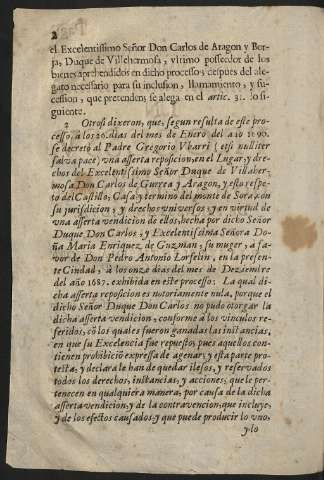 2
el Excelentissimo Señor Don Carlos de Aragon y Bor-
ja, Duque de Villehermosa, vltimo posseedor de los
bienes aprehendidos en dicho processo; y despues del ale-
gato necessario para su inclusion, llamamiento, y su-
cession, que pretenden, se alega en el artic. 31. lo si-
guiente.
2 Otrosi dixeron, que, segun resulta de este pro-
cesso, à los 20. dias del mes de Enero del año 1690.
se decretò al Padre Gregorio Vbarri (etsi nulliter
salva pace) vna asserta reposicion, en el Lugar, y dre-
chos del Excelentissimo Señor Duque de Villaher-
mosa Don Carlos de Gurrea y Aragon, y esto respe-
to del Castillo, Casa y termino del monte de Sora, con
su jurisdicion, y drechos vniversos y en virtud de
vna asserta vendicion de ellos, hecha por dicho Señor
Duque Don Carlos, y Excelentissima Señora Do-
ña Maria Enriquez de Guzman, su muger, a fa-
vor de Don Pedro Antonio Lorfelin, en la presen-
te Ciudad, à los onze dias del mes de Deziembre
del año 1687. exhibida en este processo: La qual di-
cha asserta reposicion es notoriamente nula, porque el
dicho Señor Duque Don Carlos no pudo otorgar la
dicha asserta vendicion, conforme à los vinculos re-
feridos, cõ los quales fueron ganadas las instancias,
en que su Excelencia fue repuesto, pues aquellos con-
tienen prohibiciõ expressa de agenar; y esta parte pro-
testa, y declara le han de quedar ilesos, y reservados
todos los derechos, instancias, y acciones, que le per-
tenecen en qualquiera manera, por causa de la dicha
asserta vendicion, y de la contravencion, que incluye,
y de los efectos causados, y que puede producir lo vno,
y lo